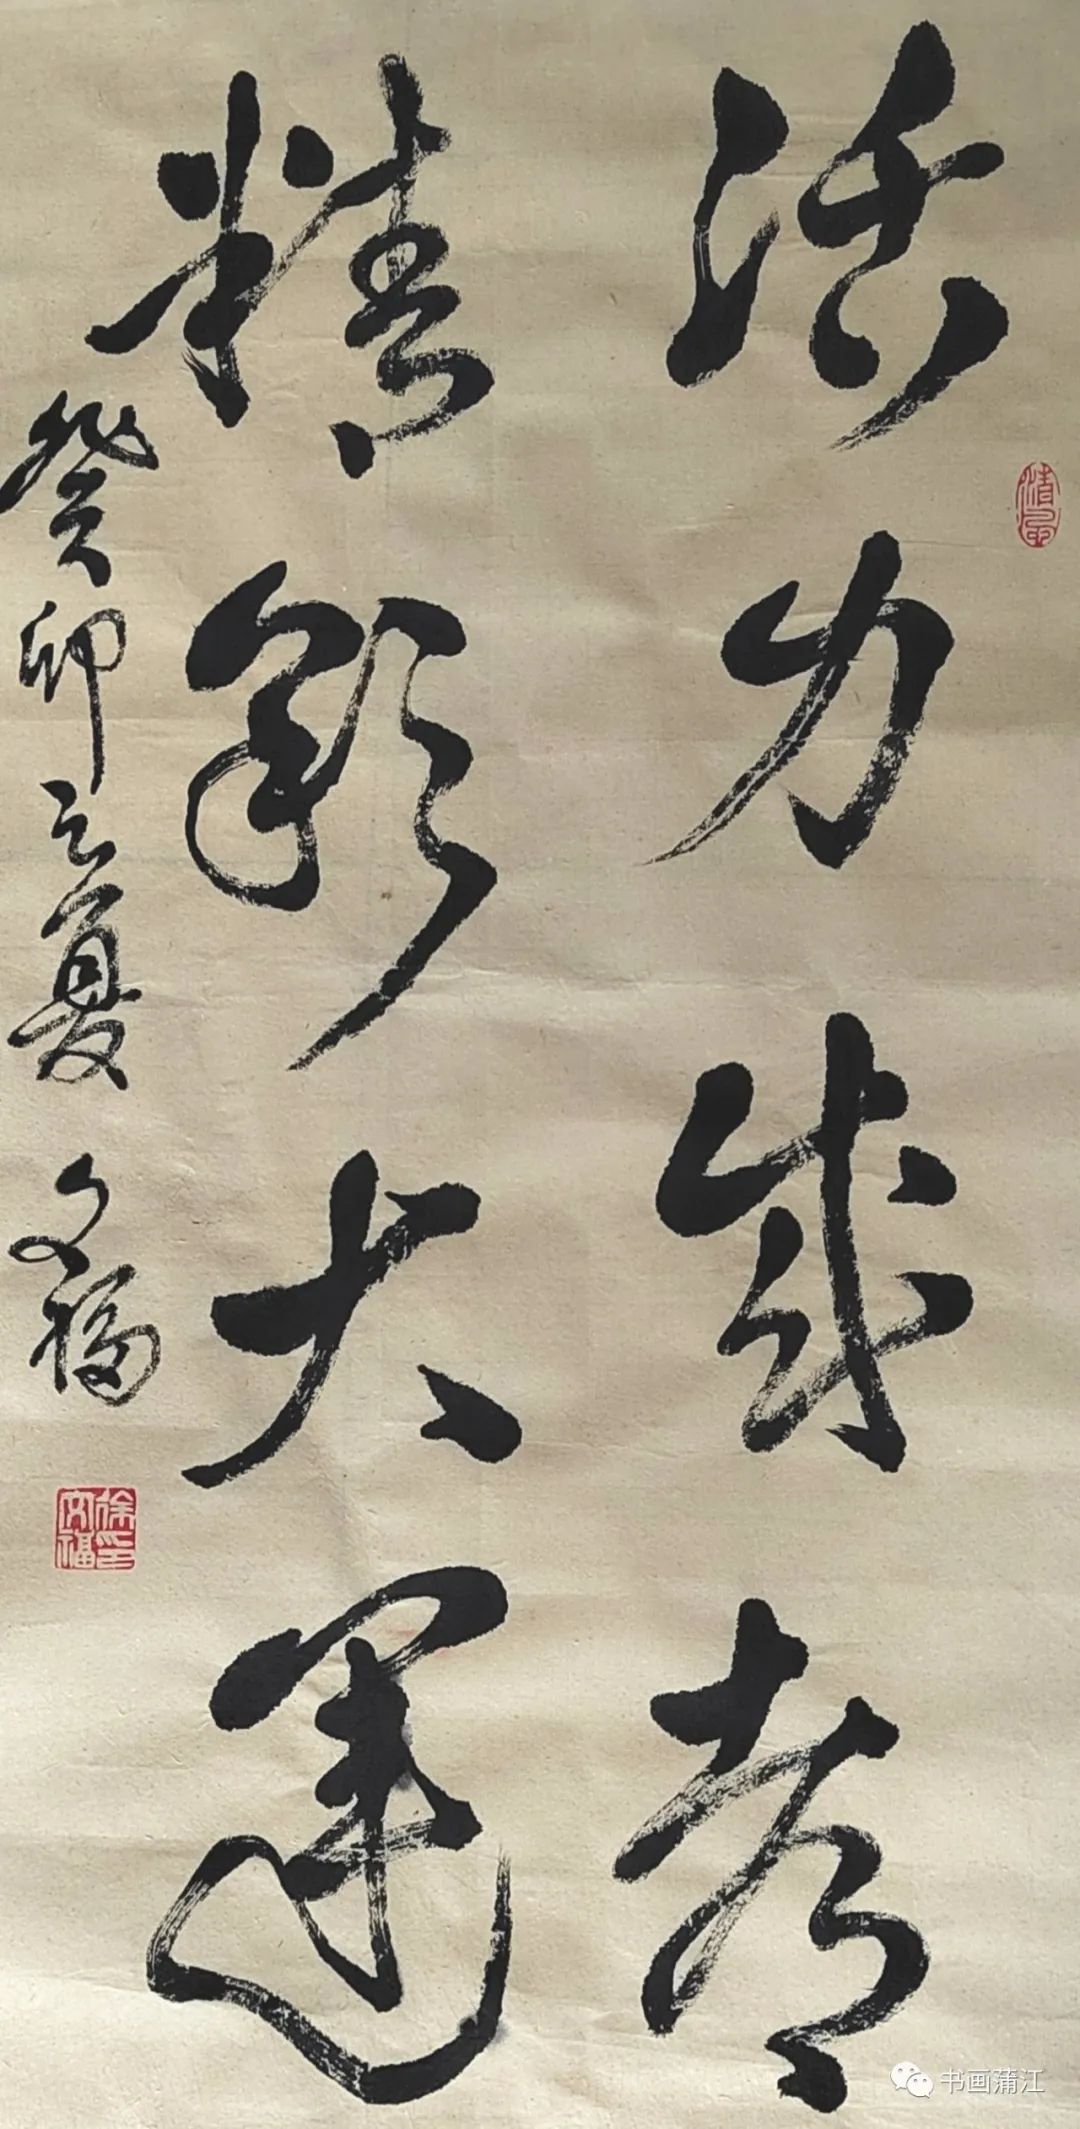 活力成都
精彩大运
癸卯之夏 文福
徐文福印
书画蒲江